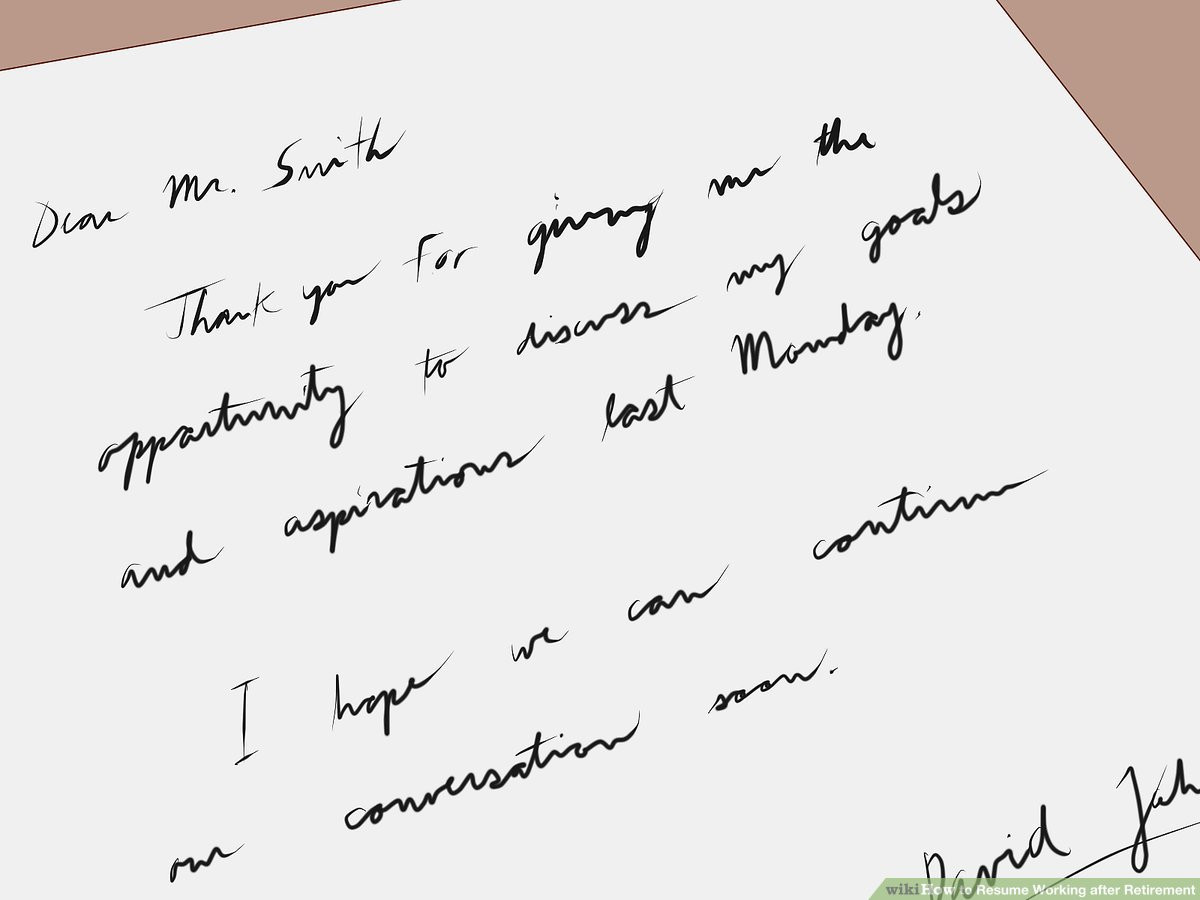 Dear Mr. Smith
Thank you for giving me the
opportunity to discuss my goals
and aspirations last Monday.
I hope we can continue
our conversation soon.
David Joh
wikiHow to Resume Working after Retirement